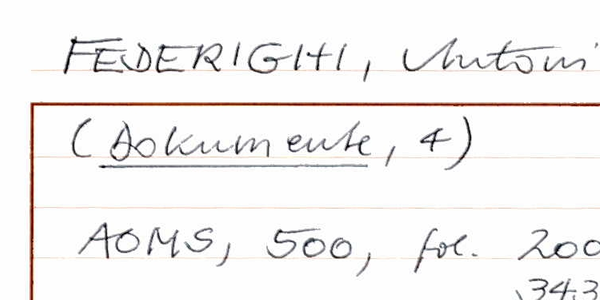 FEDERIGHI, Antoni
(Dokumente, 4)
AOMS, 500, fol. 200
343